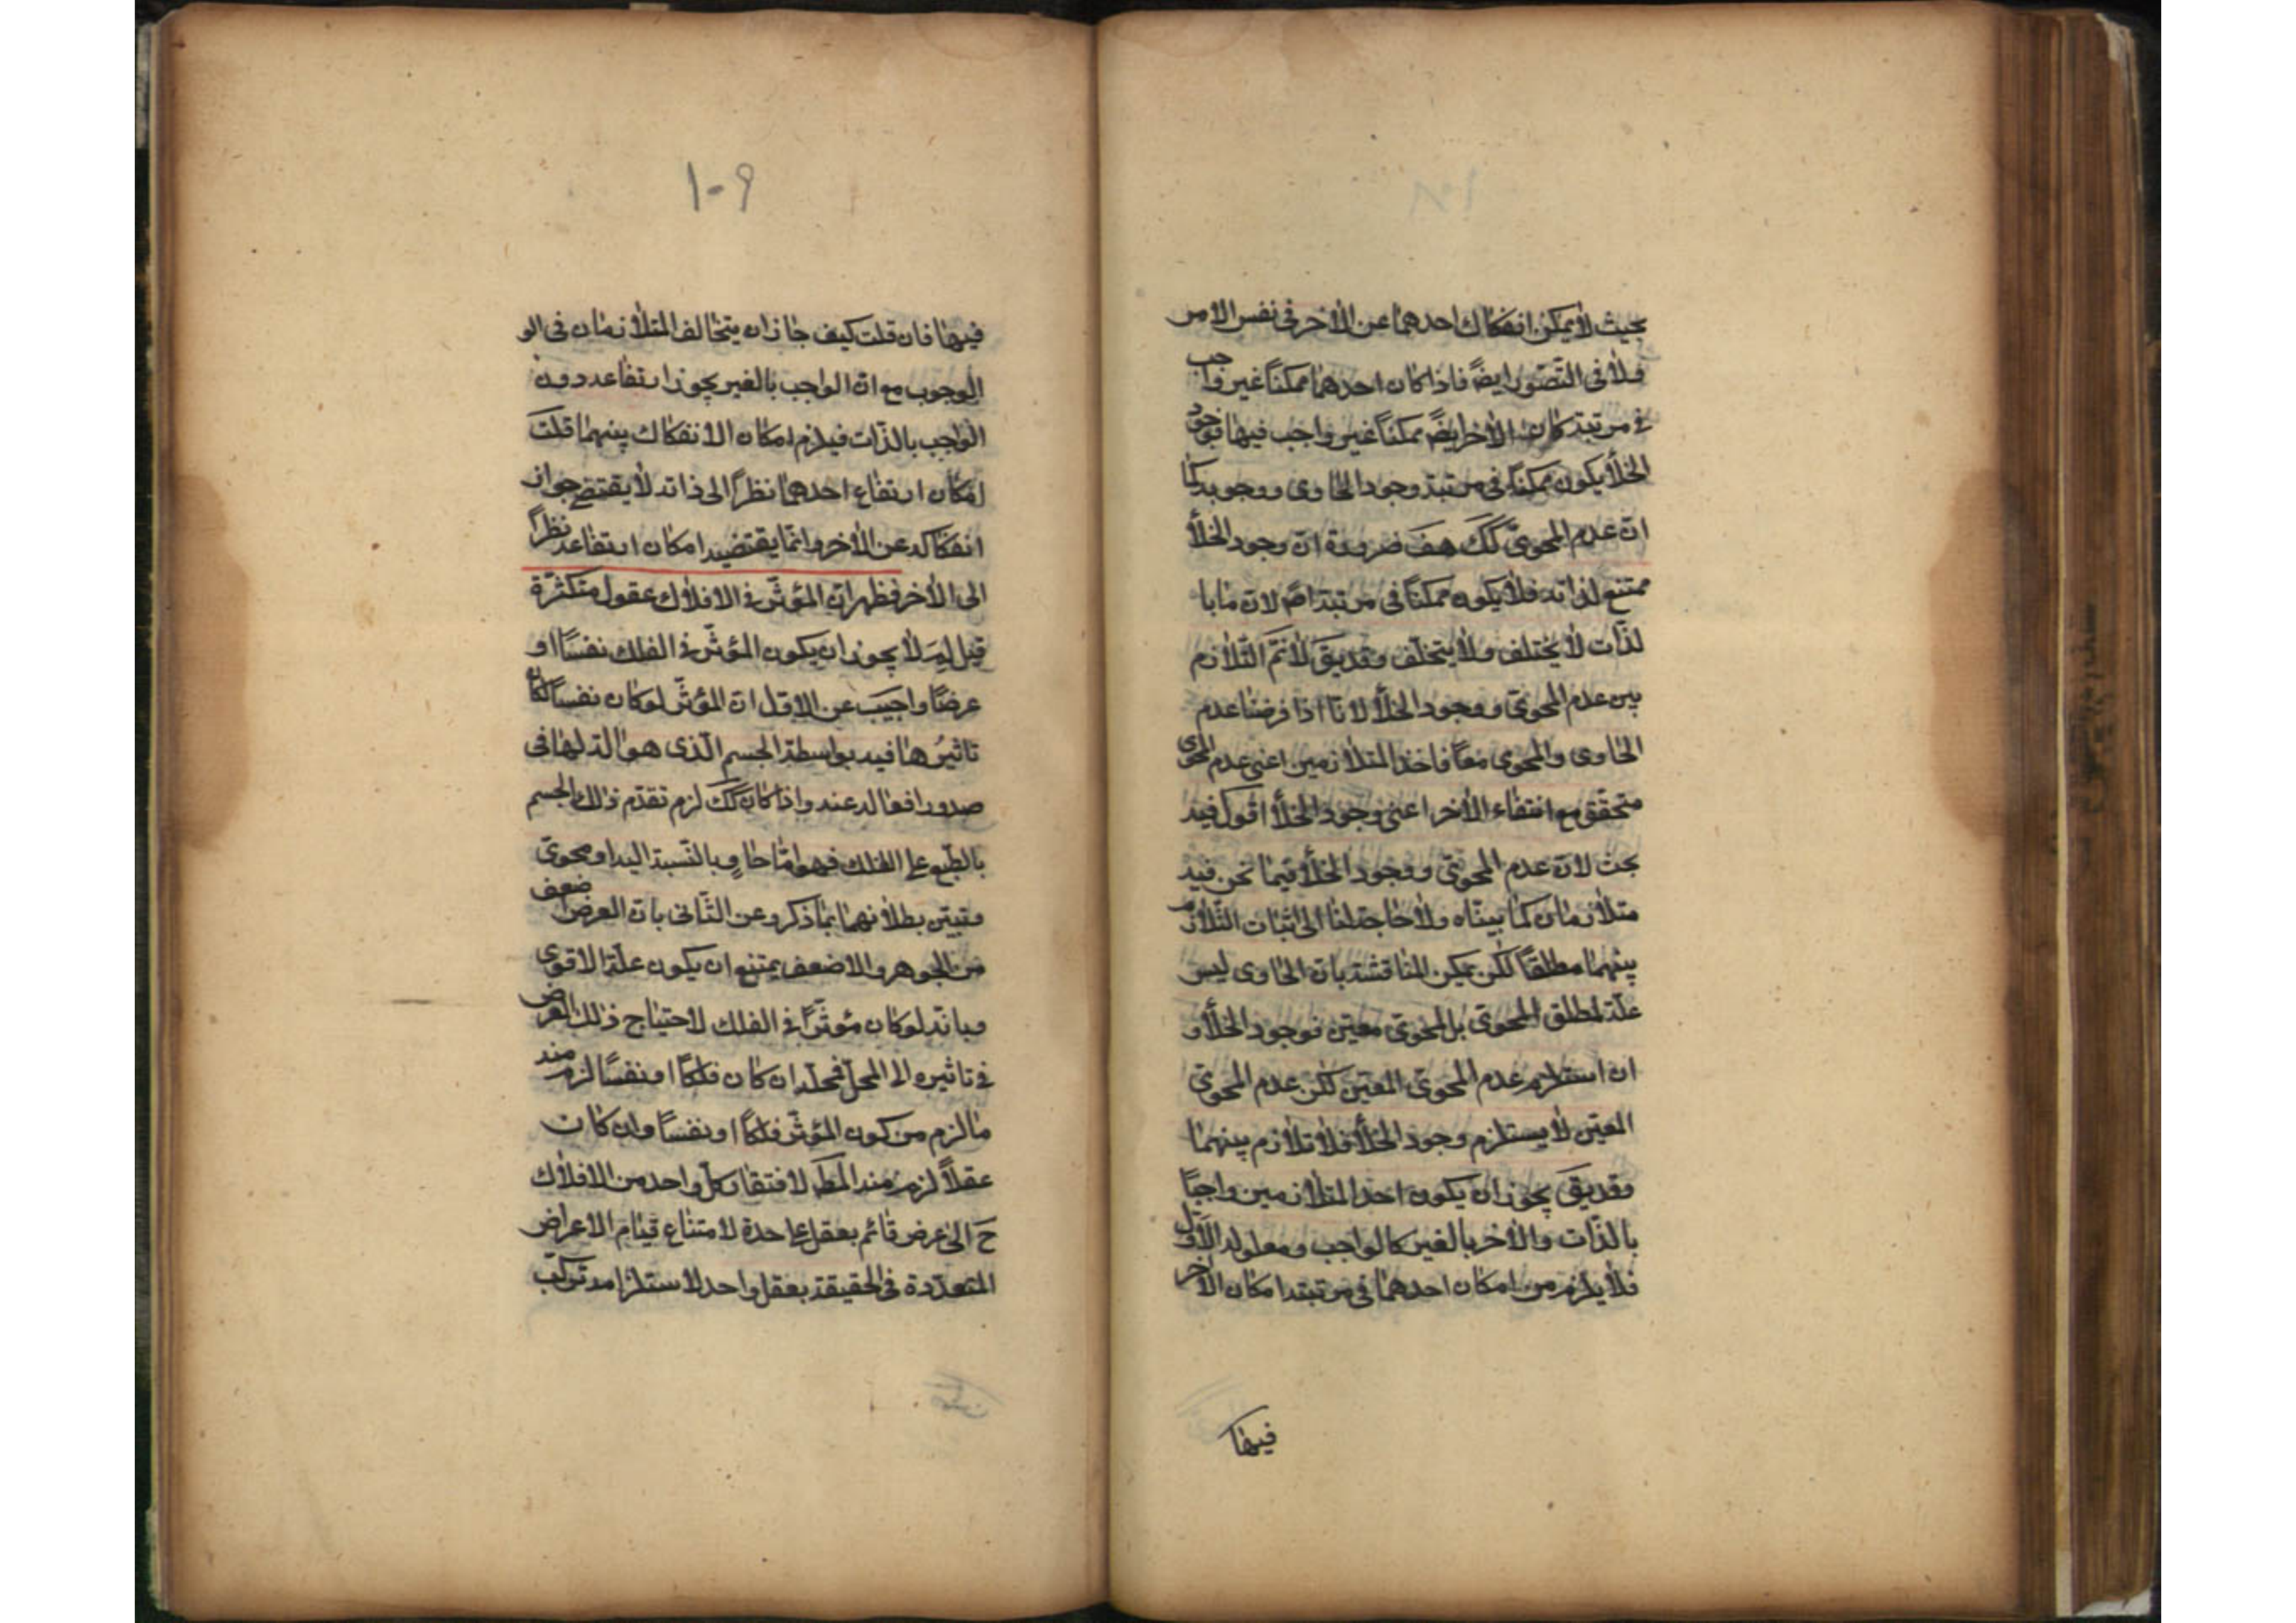 بحيث لا يمكن انفكاك احدهما عن الاخر فى نفس الامر
ولا فى التصّور ايضًا فاذا كان احدهما ممكنًا غير واجب
فى مرتبة كان الاخر ايضًا ممكنًا غير واجب فيها فوجود
الخلأ يكون ممكنًا فى مرتبة وجود الحاوى ووجوبه كما
انّ عدم المحوىّ كك هف ضرورة انّ وجود الخلأ
ممتنع لذاته فلا يكون ممكنًا فى مرتبة اصً لان ما با
لذّات لا يختلف ولا يتخلّف وقد يقَ لا نمَ التّلازم
بين عدم المحوىّ ووجود الخلأ لانّا اذا فرضنا عدم
الحاوى والمحوى معًا فاحد المتلازمين اعنى عدم المحوى
متحقّق مع انتفاء الاخر اعنى وجود الخلأ اقول فيه
بحث لانّ عدم المحوىّ ووجود الخلأ فيما نحن فيه
متلازمان كما بينّاه ولا حاجة لنا الى اثبات التّلازم
بينهما مطلقًا لكن يمكن المناقشة بانّ الحاوى ليس
علّة لمطلق المحوىّ بل لمحوىّ معيّن فوجود الخلأ و
ان استلزم عدم المحوىّ المعيّن لكن عدم المحوىّ
المعيّن لا يستلزم وجود الخلأ فلا تلازم بينهما
وقد يقَ يجوز ان يكون احد المتلازمين واجبًا
بالذّات والاخر بالغير كالواجب ومعلوله الاوّل
فلا يلزم من امكان احدهما فى مرتبة امكان الاخر
فيها
١٠٩
فيها فان قلت كيف جاز ان يتخالف المتلازمان فى الو
الوجوب مع انّ الواجب بالغير يجوز ارتفاعه دون
الواجب بالذّات فيلزم امكان الانفكاك بينهما قلت
امكان ارتفاع احدهما نظرًا الى ذاته لا يقتضى جواز
انفكاكه عن الاخر وانّما يقتضيه امكان ارتفاعه نظرًا
الى الاخر فظهر انّ المؤثّر فى الافلاك عقول متكثّرة
قيل لِمَ لا يجوز ان يكون المؤثّر فى الفلك نفسًا او
عرضًا واجيب عن الاوّل انّ المؤثّر لو كان نفسًا لكان
تاثيرُها فيه بواسطة الجسم الّذى هو الة لها فى
صدور افعاله عنه واذا كان كك لزم تقدّم ذلك الجسم
بالطّبع على الفلك فهو امّا حاوٍ بالنّسبة اليه او محوىّ
وتبيّن بطلانهما بما ذكر وعن الثّانى بانّ العرض ضعف
من الجوهر والاضعف يمتنع ان يكون علّة الاقوى
وبانّه لو كان مؤثّرًا فى الفلك لاحتياج ذلك العرض
فى تاثيره الى المحلّ فمحلّه ان كان فلكًا او نفسًا لزم منه
ما لزم من كون المؤثّر فلكًا او نفسًا وان كان
عقلاً لزم منه المط لافتقار كلّ واحد من الافلاك
حَ الى عرض قائم بعقل على حدة لامتناع قيام الاعراض
المتعدّدة فى الحقيقة بعقل واحد لاستلزامه تركّب